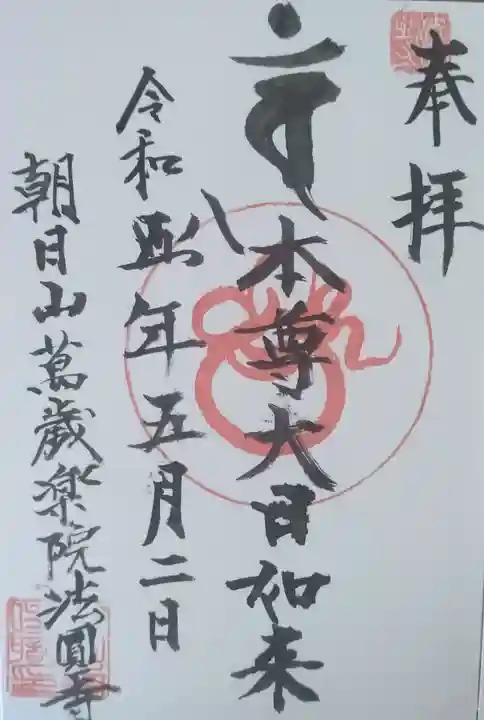 奉拝
本尊大日如来
令和 年五月二日
朝日山萬歳楽院法圓寺